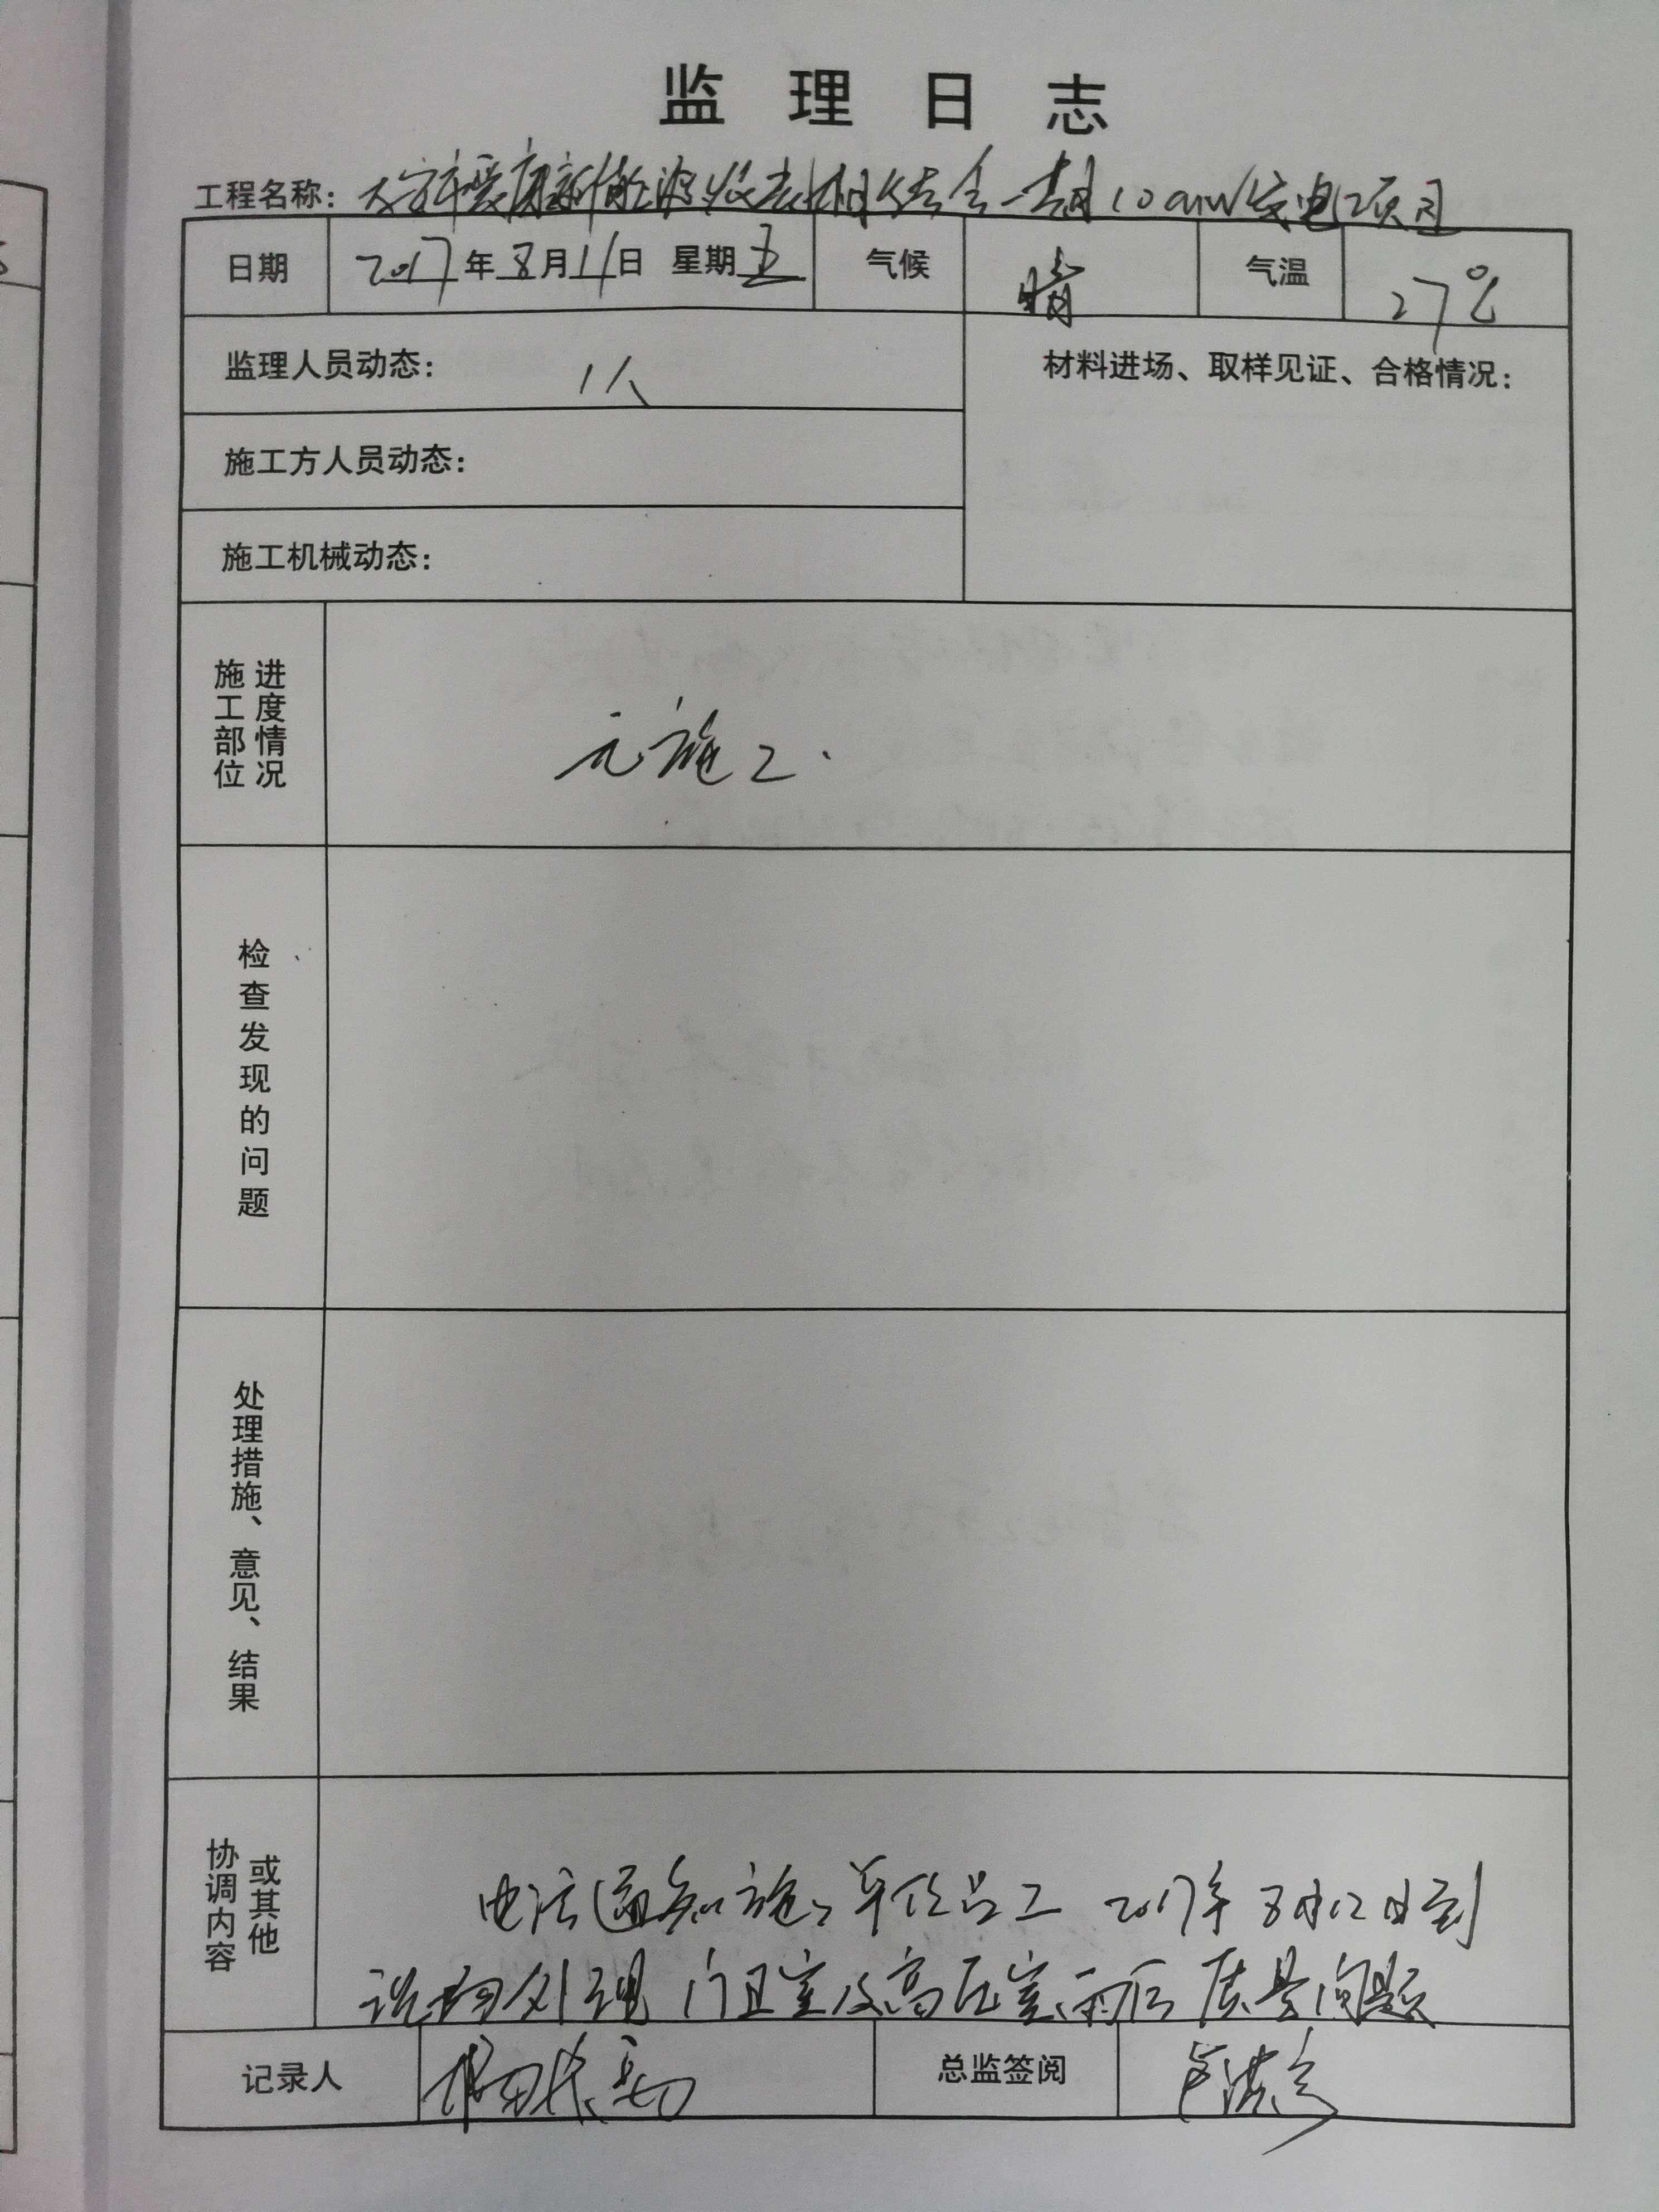 监理日志
工程名称: 大安市爱康新能源牧光相结合一期10MW发电项目
日期 2017年8月11日 星期五 气候 晴 气温 27℃
监理人员动态: 1人
材料进场、取样见证、合格情况:
施工方人员动态:
施工机械动态:
施工部位进度情况 无施工.
检查发现的问题
处理措施、意见、结果
协调内容或其他
电话通知施工单位员工 2017年8月12日到
现场处理门卫室及高压室雨后质量问题
记录人 总监签阅